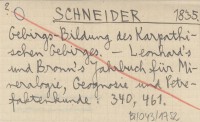 2. SCHNEIDER 1835.
Gebirgs-Bildung des Karpathi-
schen Gebirges. — Leonhard's
und Bronn's Jahrbuch für Mi-
neralogie, Geognosie und Petre-
faktenkunde. 340, 461.